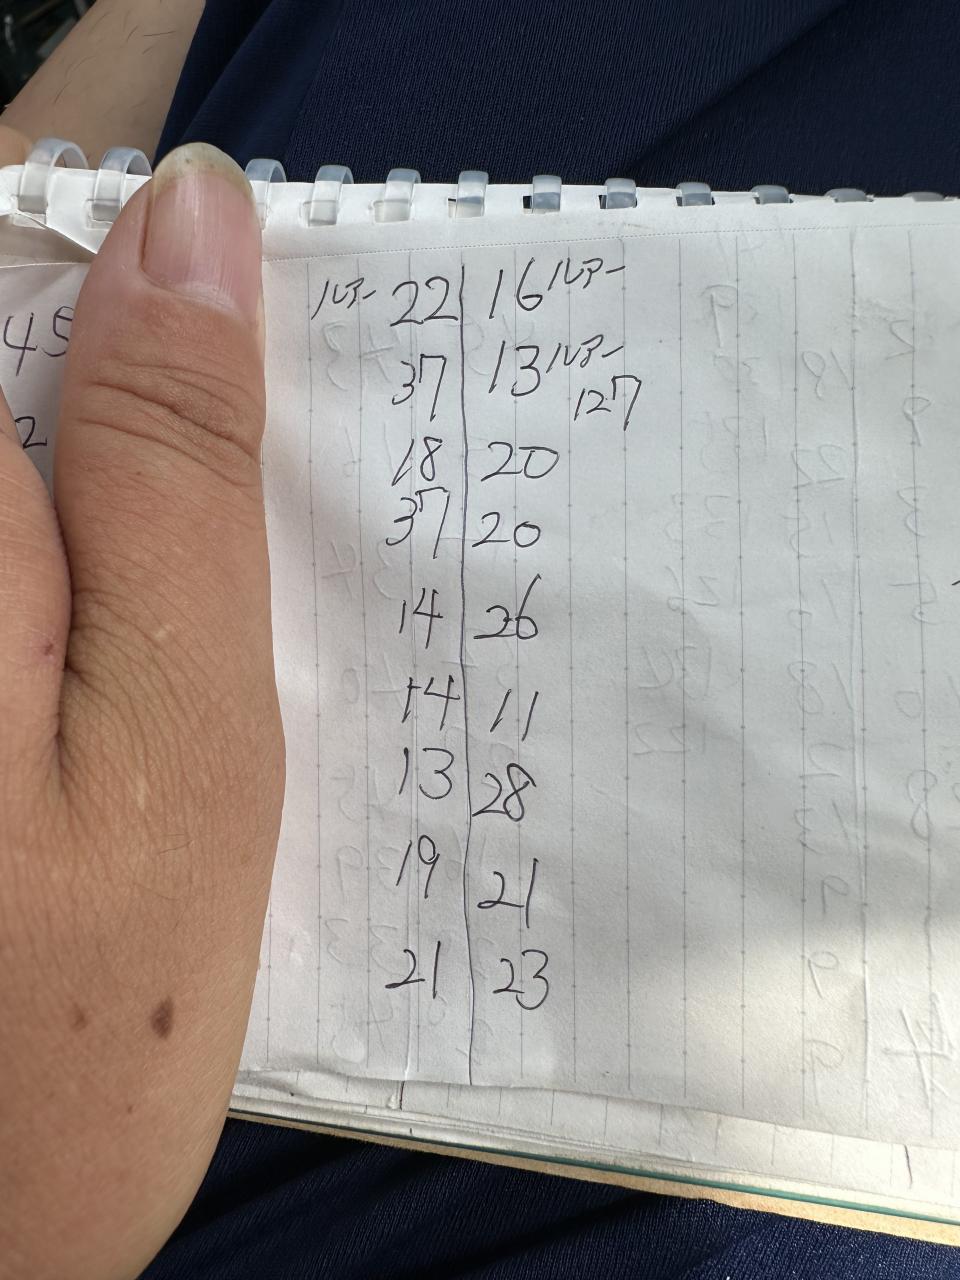 45
2
ルアー 22 16 ルアー
37 13 ルアー
127
18 20
37 20
14 26
14 11
13 28
19 21
21 23